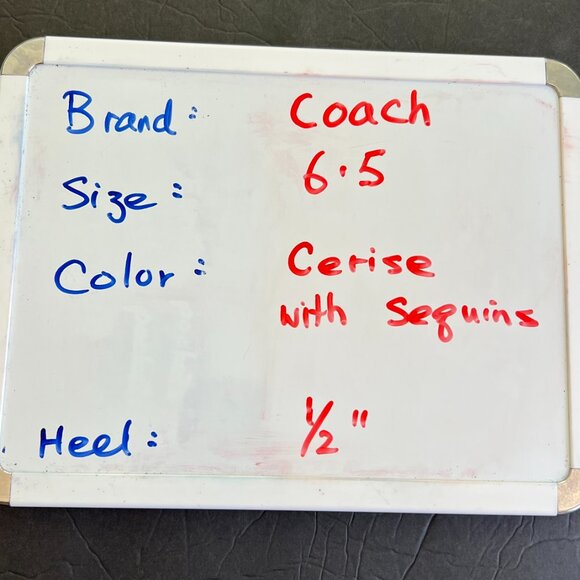 Brand: Coach
Size: 6.5
Color: Cerise
with Sequins
Heel: 1/2"